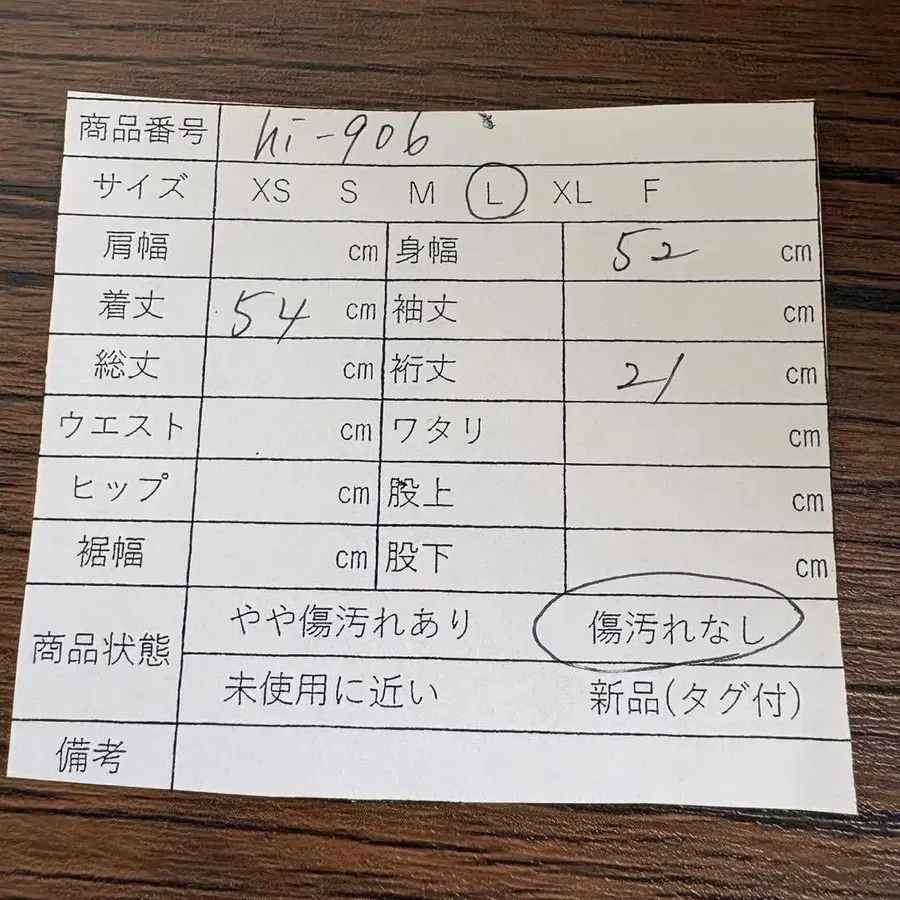 商品番号 hi-906
サイズ XS S M L XL F
肩幅 cm 身幅 52 cm
着丈 54 cm 袖丈 cm
総丈 cm 裄丈 21 cm
ウエスト cm ワタリ cm
ヒップ cm 股上 cm
裾幅 cm 股下 cm
商品状態 やや傷汚れあり 傷汚れなし
未使用に近い 新品(タグ付)
備考